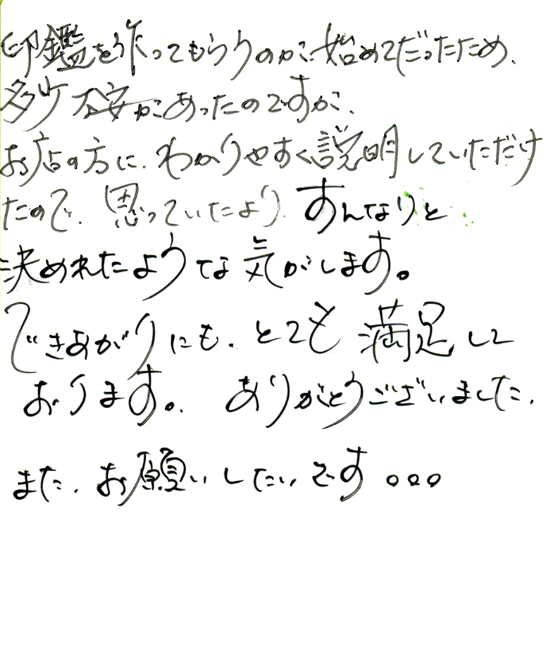 印鑑を作ってもらうのが始めてだったため、
多少不安があったのですが、
お店の方に、わかりやすく説明していただけ
たので、思っていたより、すんなりと
決めれたような気がします。
できあがりにも、とても満足して
おります。ありがとうございました。
また、お願いしたいです。。。